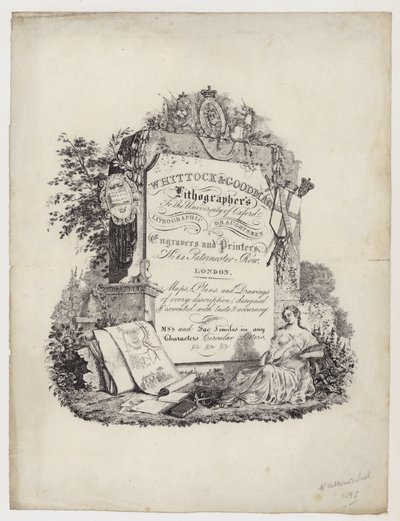 WHITTOCK & GOODMAN
Lithographers
To the University of Oxford
LITHOGRAPHIC DRAUGHTSMEN
Engravers and Printers.
Paternoster Row.
LONDON.
Maps, Plans, and Drawings
of every description, designed
& executed with taste & accuracy.
MS's and Fac Similes in any
Characters Circular Letters.
&c &c &c